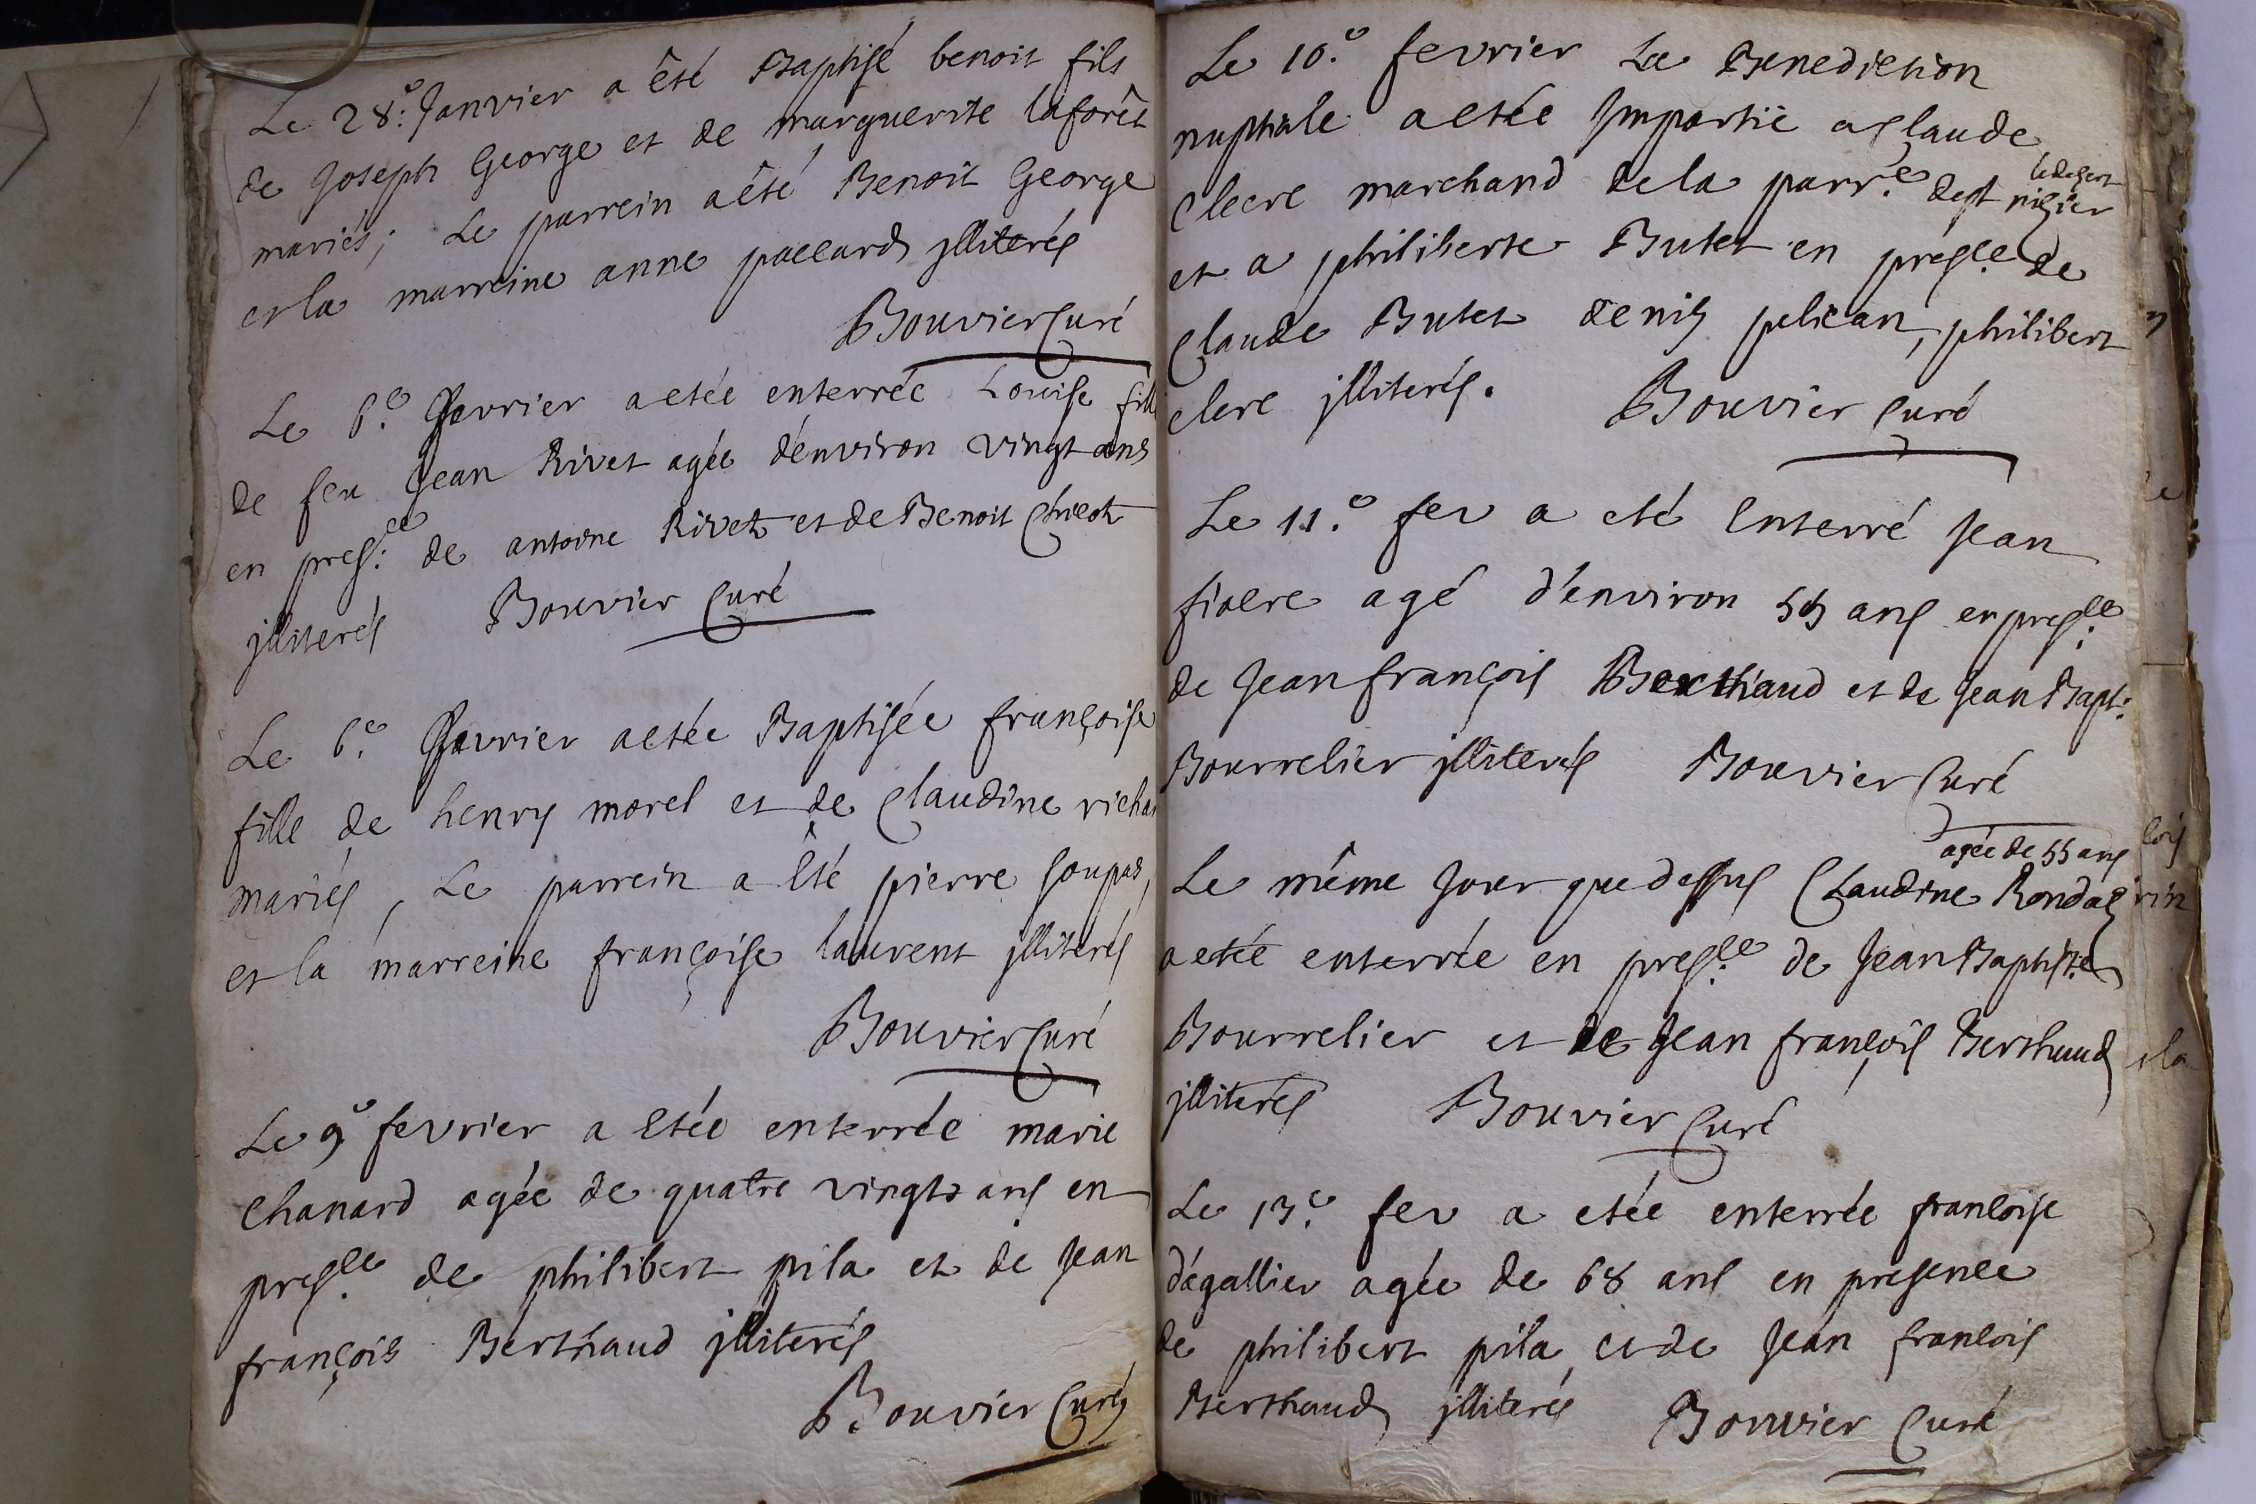 Le 28.e Janvier a êté Baptisé benoit fils
de Joseph George et de marguerite laforêt
mariés; Le parrein a êté Benoit George
et la marreine anne paccard jlliterés
Bouvier Curé
Le 6.e fevrier a etée enterrée Louise fille
de feu Jean Rivet agée d'environ vingt ans
en pres.ce de antoine Rivet et de Benoit
jlliterés Bouvier Curé
Le 6.e fevrier a etée Baptisée françoise
fille de henry morel et de Claudine richa
mariés, Le parrein a êté pierre soupas,
et la marreine françoise laurent jlliterés
Bouvier Curé
Le 9e fevrier a etée enterrée marie
Chanard agée de quatre vingts ans en
pres.ce de philibert pila et de Jean
françois Berthaud jlliterés
Bouvier Curé
Le 10.e fevrier La Benediction
nuptiale a etée Jmpartie a Claude
Clerc marchand de la parr.e de st nizier
le desert
et a philiberte Butet en prés.ce de
Claude Butet denis pelican, philibert
clerc jlliterés. Bouvier Curé
Le 11.e fev a eté Enterré Jean
fiacre agé d'environ ans en pres.ce
de Jean françois Berthaud et de Jean Bapt:
Bourrelier jlliterés Bouvier Curé
agée de 55 ans
Le même Jour que dessus Claudine Rondas
a etée enterrée en pres.ce de Jean Baptiste
Bourrelier et de Jean françois Berthaud
jlliterés Bouvier Curé
Le 13.e fev a etée enterrée francoise
dégallier agée de 68 ans en presence
de philibert pila et de Jean francois
Berthaud jlliterés Bouvier Curé